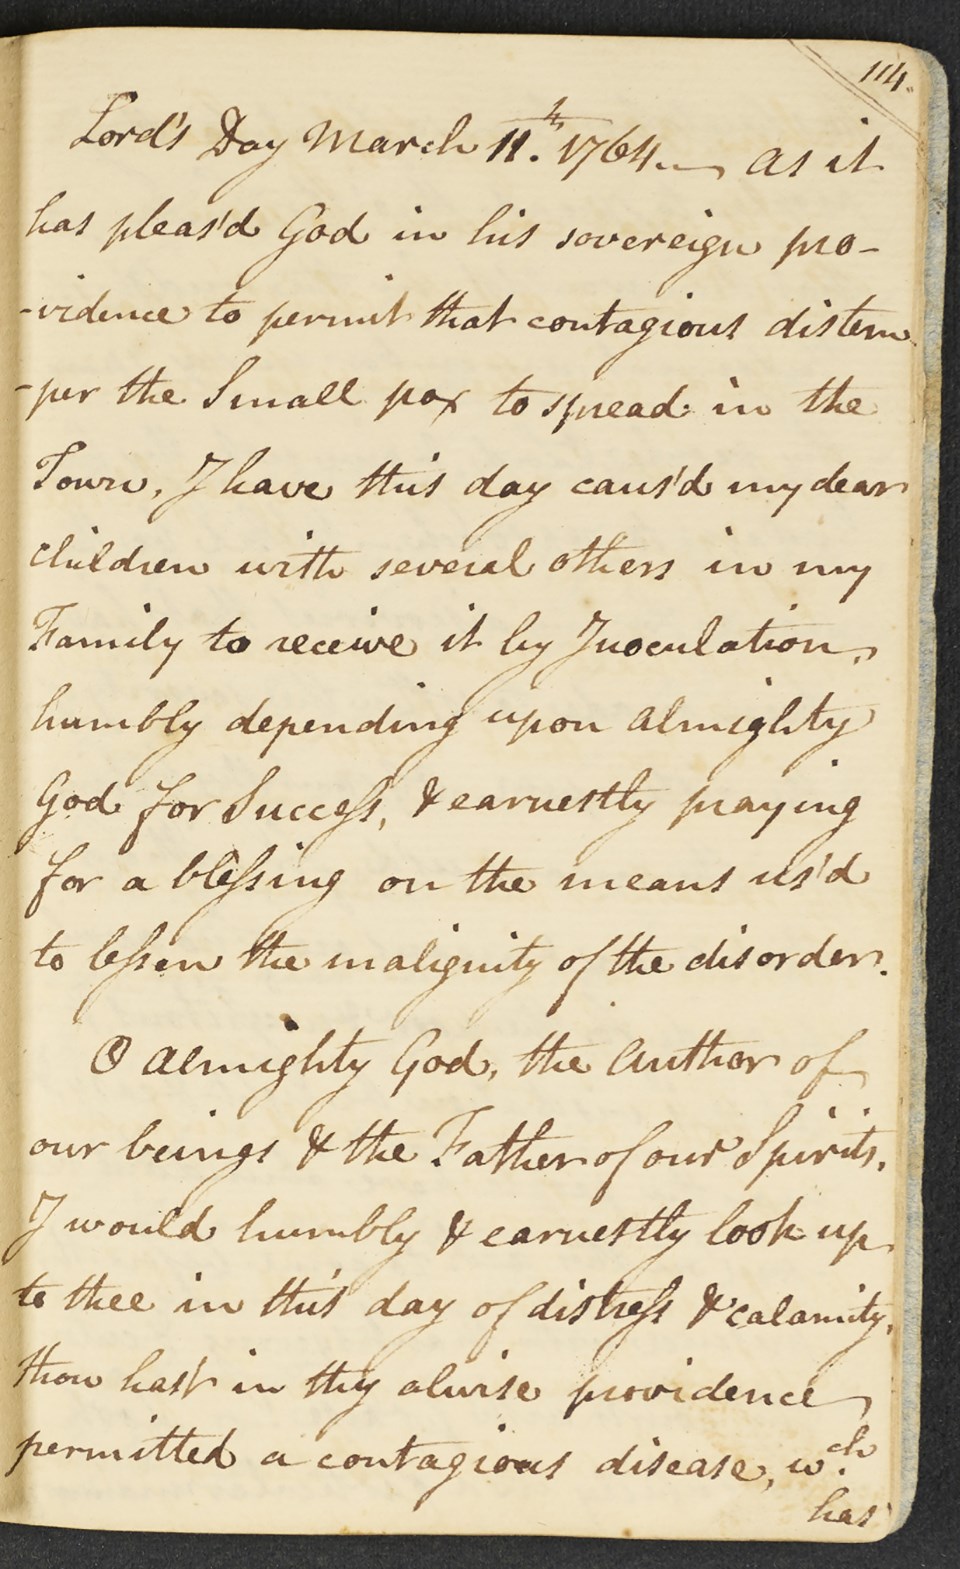 114.
Lord's Day March 11.th 1764. as it
has pleas'd God in his sovereign pro-
-vidence to permit that contagious distem
-per the Small pox to spread in the
Town, I have this day caus'd my dear
children with several others in my
Family to receive it by Inoculation,
humbly depending upon almighty
God for Success, & earnestly praying
for a blessing on the means us'd
to lessen the malignity of the disorder.
O almighty God, the Author of
our beings & the Father of our Spirits,
I would humbly & earnestly look up
to thee in this day of distress & calamity,
thou hast in thy alwise providence
permitted a contagious disease, w.ch
has